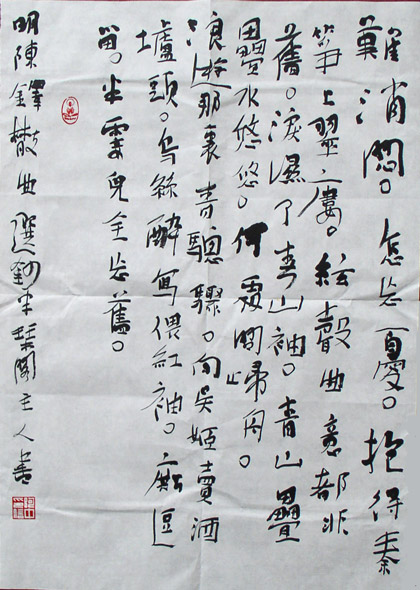 難消悶。怎忘憂。抱得秦
箏上翠樓。絃聲曲意都非
舊。淚濕了春山袖。青山疊
疊水悠悠。何處問歸舟。
浪遊那裏青驄驟。向吳姬賣酒
壚頭。烏絲醉寫偎紅袖。廝逗
留。半霎兒全忘舊。
明陳鐸散曲選鈔半琴閣主人書